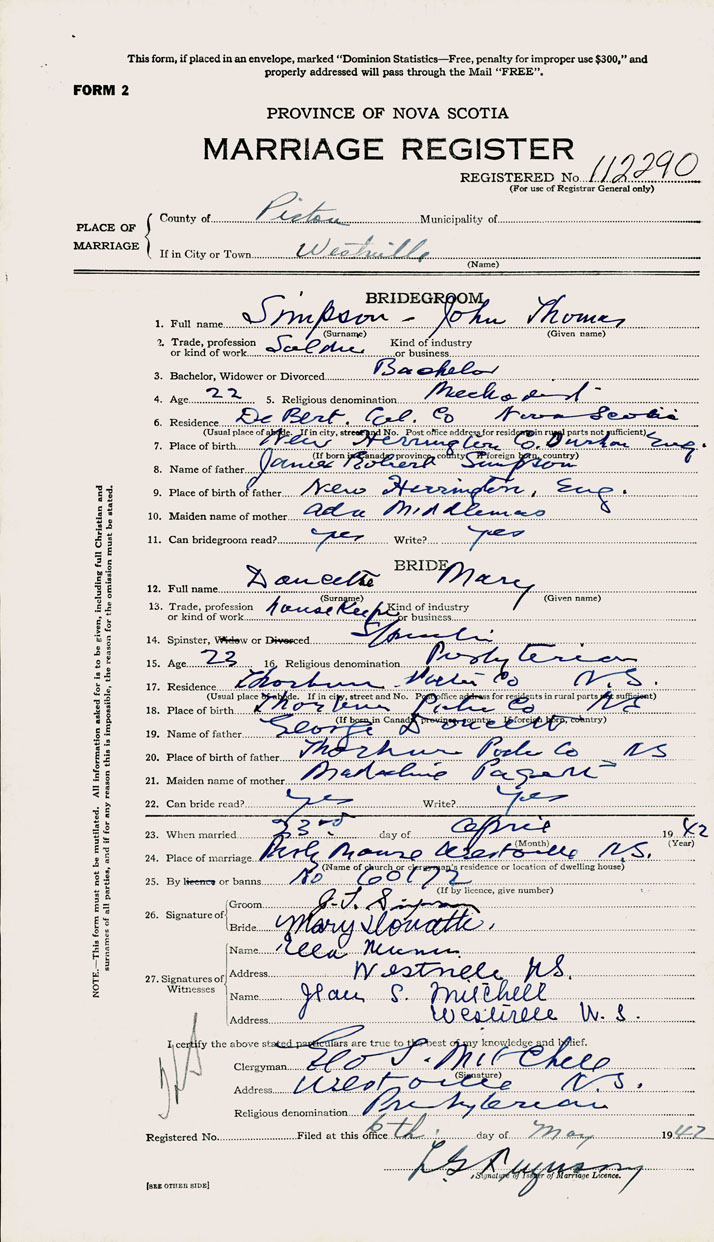 This form, if placed in an envelope, marked "Dominion Statistics—Free, penalty for improper use $300," and
properly addressed will pass through the Mail "FREE".
FORM 2
PROVINCE OF NOVA SCOTIA
MARRIAGE REGISTER
REGISTERED No. 112290
(For use of Registrar General only)
PLACE OF MARRIAGE
County of Pictou Municipality of
If in City or Town Westville
(Name)
BRIDEGROOM
1. Full name Simpson - John Thomas
(Surname) (Given name)
2. Trade, profession or kind of work Soldier Kind of industry or business
3. Bachelor, Widower or Divorced Bachelor
4. Age 22 5. Religious denomination Methodist
6. Residence De Bert. Col. Co Nova Scotia
(Usual place of abode. If in city, street and No. Post office address for residents in rural parts not sufficient)
7. Place of birth New Herrington Co. Durham Eng.
(If born in Canada, province, county. If foreign born, country)
8. Name of father James Robert Simpson
9. Place of birth of father New Herrington, Eng.
10. Maiden name of mother Ada Middlemas
11. Can bridegroom read? yes Write? yes
BRIDE
12. Full name Doucette Mary
(Surname) (Given name)
13. Trade, profession or kind of work housekeeper Kind of industry or business
14. Spinster, Widow or Divorced Spinster
15. Age 23 16. Religious denomination Presbyterian
17. Residence Thorburn Pictou Co N.S.
(Usual place of abode. If in city, street and No. Post office address for residents in rural parts not sufficient)
18. Place of birth Thorburn Pictou Co NS
(If born in Canada, province, county. If foreign born, country)
19. Name of father George Doucett
20. Place of birth of father Thorburn Pictou Co NS
21. Maiden name of mother Madeline
22. Can bride read? yes Write? yes
23. When married 23rd day of April 1942
(Month) (Year)
24. Place of marriage Manse Westville N.S.
(Name of church or clergyman's residence or location of dwelling house)
25. By licence or banns No 60172
(If by licence, give number)
26. Signature of
Groom J. T. Simpson
Bride Mary Doucette.
27. Signatures of Witnesses
Name Ella
Address Westville NS.
Name Jean S. Mitchell
Address Westville N.S.
I certify the above stated particulars are true to the best of my knowledge and belief.
Clergyman Geo S. Mitchell
(Signature)
Address Westville N.S.
Religious denomination Presbyterian
Registered No. Filed at this office 6th. day of May 1942
L G Ferguson
Signature of Issuer of Marriage Licence.
[SEE OTHER SIDE]
NOTE.—This form must not be mutilated. All information asked for is to be given, including full Christian and
surnames of all parties, and if for any reason this is impossible, the reason for the omission must be stated.